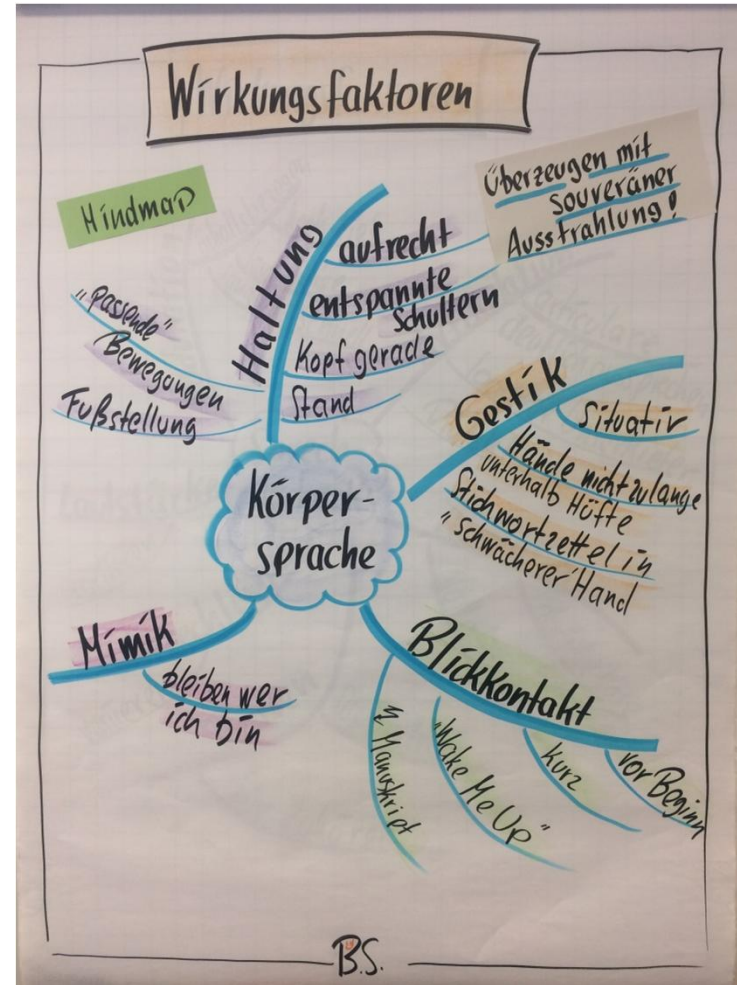 Wirkungsfaktoren
Mindmap
Überzeugen mit
Souveräner
Ausstrahlung!
Haltung
aufrecht
entspannte
Schultern
Kopf gerade
Stand
„passende“
Bewegungen
Fußstellung
Gestik
Situativ
Hände nicht zulange
unterhalb Hüfte
Stichwortzettel in
"schwächerer' Hand
Körper-
sprache
Mimik
bleiben wer
ich bin
Blickkontakt
Manuskript
„Wake Me Up“
kurz
vor Beginn
B.S.